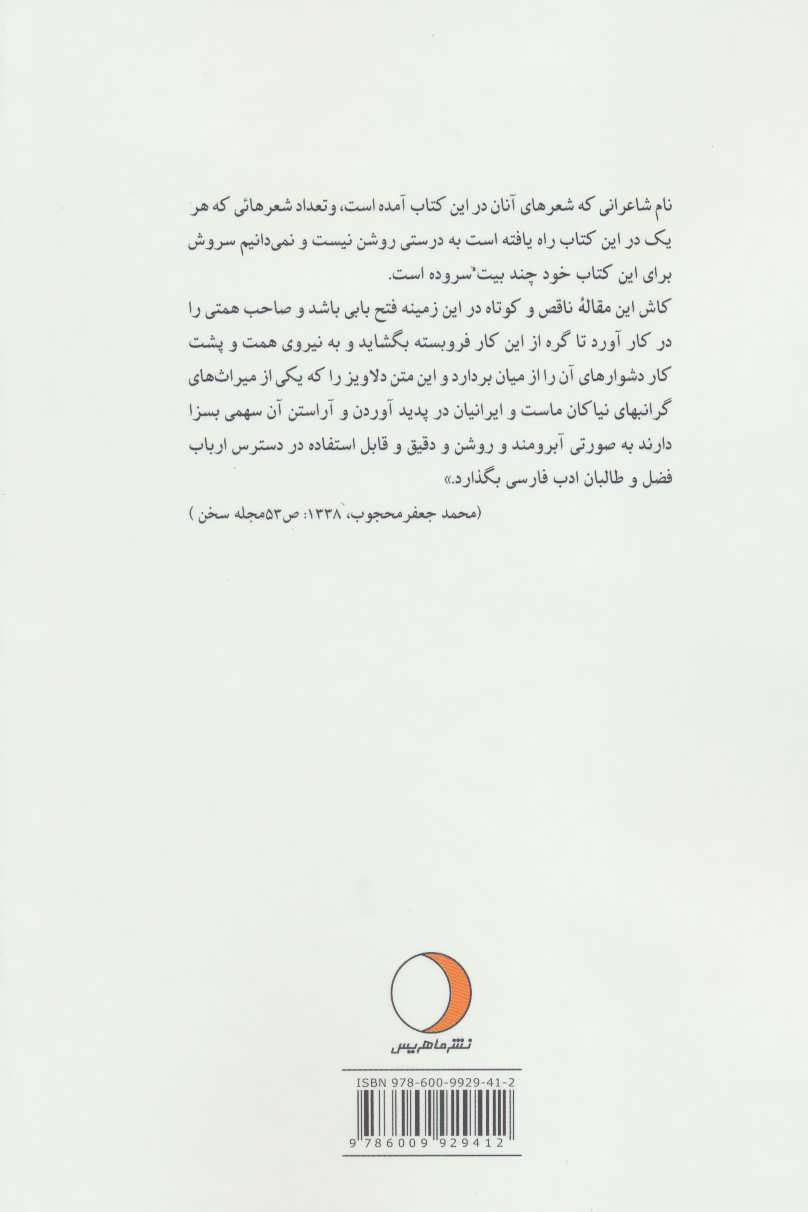 نام شاعرانی که شعرهای آنان در این کتاب آمده است، وتعداد شعرهائی که هر
یک در این کتاب راه یافته است به درستی روشن نیست و نمی‌دانیم سروش
برای این کتاب خود چند بیت سروده است.
کاش این مقالهٔ ناقص و کوتاه در این زمینه فتح بابی باشد و صاحب همتی را
در کار آورد تا گره از این کار فروبسته بگشاید و به نیروی همت و پشت
کار دشوارهای آن را از میان بردارد و این متن دلاویز را که یکی از میراث‌های
گرانبهای نیاکان ماست و ایرانیان در پدید آوردن و آراستن آن سهمی بسزا
دارند به صورتی آبرومند و روشن و دقیق و قابل استفاده در دسترس ارباب
فضل و طالبان ادب فارسی بگذارد.»
(محمد جعفرمحجوب، ۱۳۳۸: ص۵۳مجله سخن )
نشر ماهریس
ISBN 978-600-9929-41-2
9 786009 929412